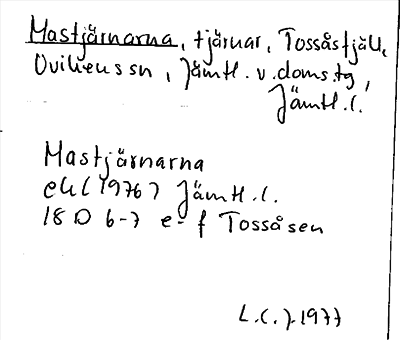 Mastjärnarna, tjärnar, Tossåsfjäll,
Ovikens sn, Jämtl. v. doms.tg,
Jämtl. l.
Mastjärnarna
ek (1976) Jämtl. l.
18 D 6-7 e-f Tossåsen
L.C.J. 1977